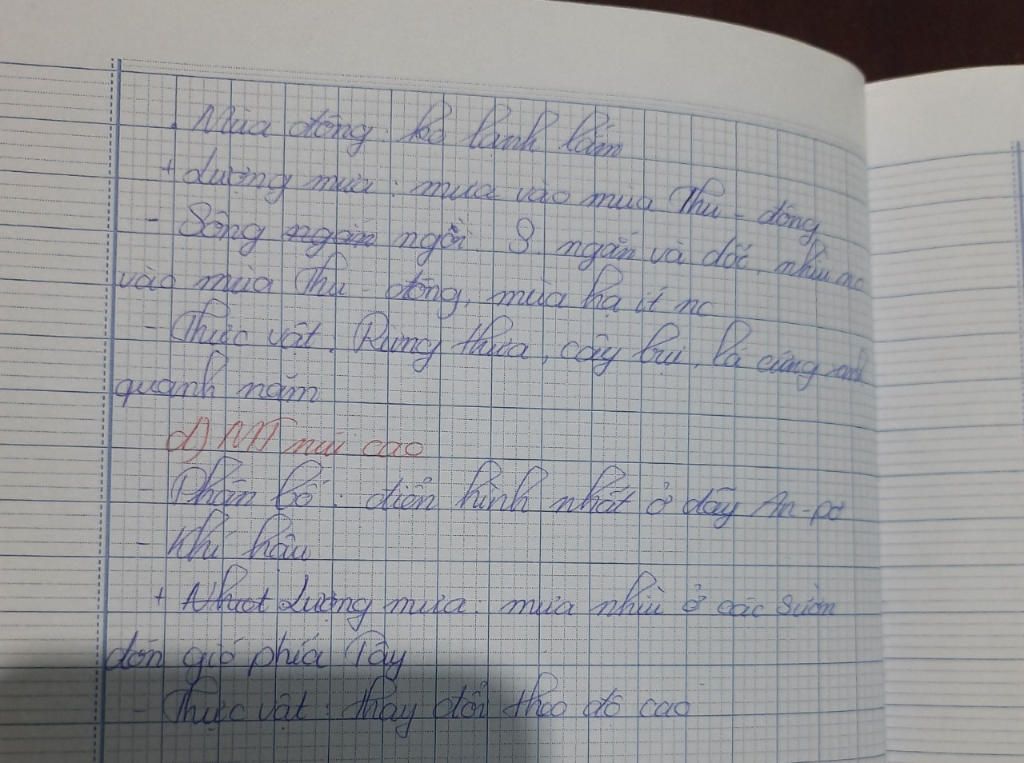 . Mùa đông: ko lạnh lắm
+ Lượng mưa: mưa vào mùa Thu - đông
- Sông ngòi: S. ngắn và dốc, nhìu nc
vào mùa Thu - đông, mùa hạ ít nc
- Thực vật: Rừng thưa, cây bụi, lá cứng xanh
quanh năm
d) MT núi cao
- Phân bố: điển hình nhất ở dãy An-pơ
- Khí hậu
+ Lượng mưa: mưa nhìu ở các sườn
đón gió phía Tây
- Thực vật: thay đổi theo độ cao